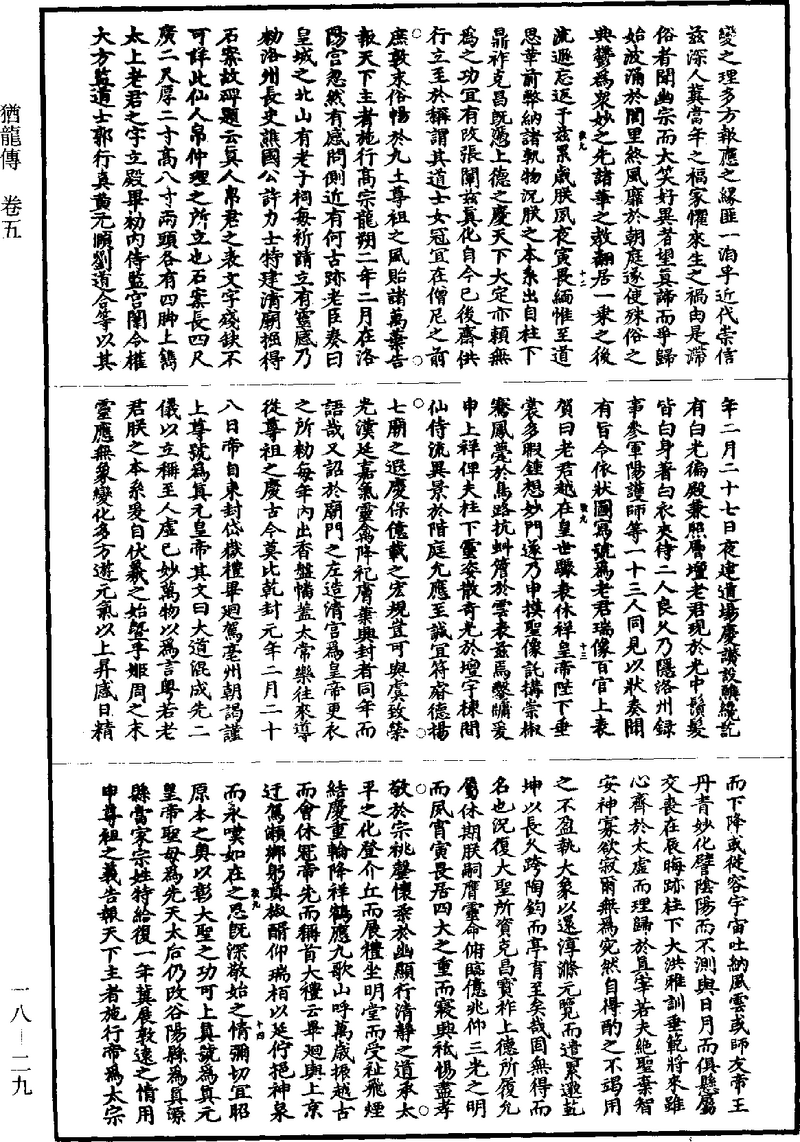 變之理多方報應之緣匪一洎乎近代崇信
茲深人冀當年之福家懼來生之禍由是滯
俗者聞幽宗而大笑好異者望真諦而爭歸
始波涌於閭里終風靡於朝庭遂使殊俗之
典鬱為衆妙之先諸華之教翻居一乘之後
流遯忘返于茲累歲朕夙夜寅畏緬惟至道
思革前弊納諸軌物況朕之本系出自柱下
鼎祚克昌既憑上德之慶天下大定亦賴無
為之功宜有改張闡茲真化自今已後齋供
行立至於稱謂其道士女冠宜在僧尼之前
庶敦末俗暢於九土尊祖之風貽諸萬葉告
報天下主者施行高宗龍朔二年二月在洛
陽宮忽然有感問側近有何古跡老臣奏曰
皇城之北山有老子祠每祈請立有靈感乃
勑洛州長史譙國公許力士特建清廟掘得
石案故碑題云真人帛君之表文字殘缺不
可詳此仙人帛仲理之所立也石案長四尺
廣二尺厚二寸高八寸兩頭各有四脚上鐫
太上老君之字立殿畢勑內侍監宮闈令權
大方監道士郭行真黃元賾劉道合等以其
年二月二十七日夜建道場慶讚設醮纔訖
有白光徧殿兼照層壇老君現於光中鬚髮
皆白身著白衣夾侍二人良久乃隱洛州録
事參軍陽護師等一十三人同見以狀奏聞
有旨令依狀圖寫號為老君瑞像百官上表
賀曰老君越在皇世驟表休祥皇帝陛下垂
裳多暇鍾想妙門遂乃申摸聖像託搆崇椒
騫鳳甍於馬路抗虬簷於雲表茲焉鑿牖爰
申上祥俾夫柱下靈姿散奇光於壇宇棟間
仙侍流異景於階庭允應至誠宜符齋德揚
七廟之遐慶保億載之宏規豈可與虞致榮
光漢延嘉氣靈禽降祀膚棗與封者同年而
語哉又詔於廟門之左造清宮為皇帝更衣
之所勑每年內出香盤幡蓋太常樂往來導
從尊祖之慶古今莫比乾封元年二月二十
八日帝自東封岱嶽禮畢迴駕亳州朝謁謹
上尊號為真元皇帝其文曰大道混成先二
儀以立稱至人虛己妙萬物以為言粤若老
君朕之本系爰自伏羲之始暨乎姬周之末
靈應無象變化多方遊元氣以上昇感日精
而下降或從容宇宙吐納風雲或師友帝王
丹青妙化譬陰陽而不測與日月而俱懸屬
交喪在辰晦跡柱下大洪雅訓垂範將來雖
心齋於太虛而理歸於真宰若夫絶聖棄智
安神寡欲寂爾無為窅然自得酌之不竭用
之不盈執大象以還淳滌元覽而遺累邈乾
坤以長久跨陶鈞而亭育至矣哉固無得而
名也況復大聖所資克昌寶祚上德所履允
屬休期朕嗣膺靈命俯臨億兆仰三光之明
而夙宵寅畏居四大之重而寢興祗惕盡孝
敬於宗祧罄懷柔於幽顯行清靜之道承太
平之化登介丘而展禮坐明堂而受祉飛煙
結慶重輪降祥鶴應九歌山呼萬歲振越古
而會休冠帝先而稱首大禮云畢迴輿上京
迂駕瀨鄉躬奠椒醑仰瑞柏以延佇挹神泉
而永嘆如在之思既深敬始之情彌切宜昭
原本之奥以彰大聖之功可上真號為真元
皇帝聖母為先天太后仍改谷陽縣為真源
縣當家宗姓特給復一年冀展敦遠之情用
申尊祖之義告報天下主者施行帝為太宗
敦九
十二
敦九
十三
敦九
十四
猶龍傳 卷五
一八—二九